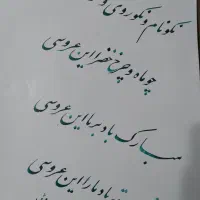 نکو نام و نکو روی و
چو ماه و چرخ خضرا این عروسی
مبارک باد بر ما این عروسی
باد ما را این عروسی